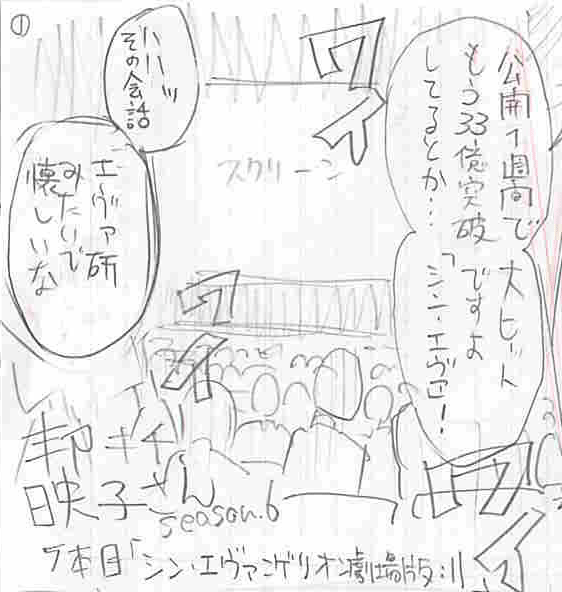 ①
公開1週間で
もう33億突破
してるとか…
大ヒット
ですよ
「シン・エヴァ」!
ハハッ
その会話
エヴァ研
みたいで
懐しいな
スクリーン
ワイ
ワイ
ワイ
邦キチ
映子さん
season.6
7本目「シン・エヴァンゲリオン劇場版:||」